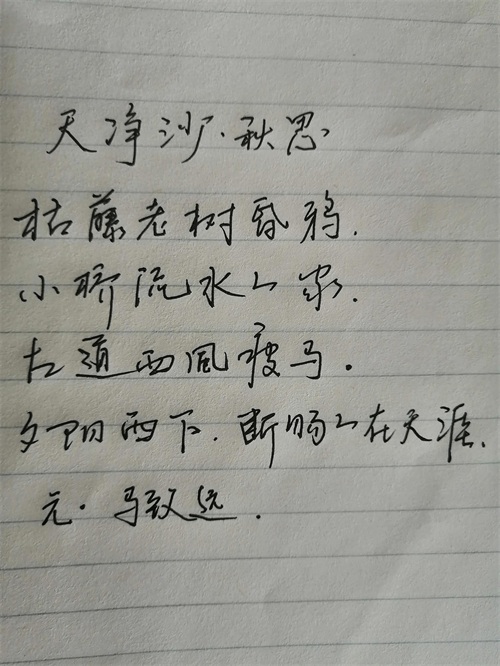 天净沙·秋思
枯藤老树昏鸦.
小桥流水人家.
古道西风瘦马.
夕阳西下.断肠人在天涯.
元·马致远.